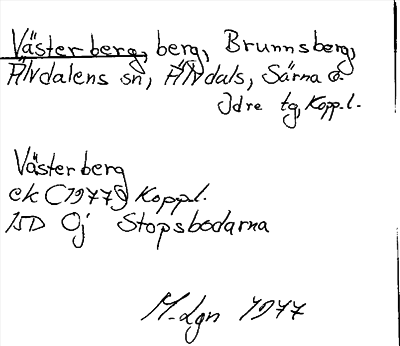 Västerberg, berg, Brunnsberg,
Älvdalens sn, Älvdals, Särna o.
Idre tg, Kopp.l.
Västerberg
ek (1977) Koppl.
15D 0j Stopsbodarna
M. Lgn 1977